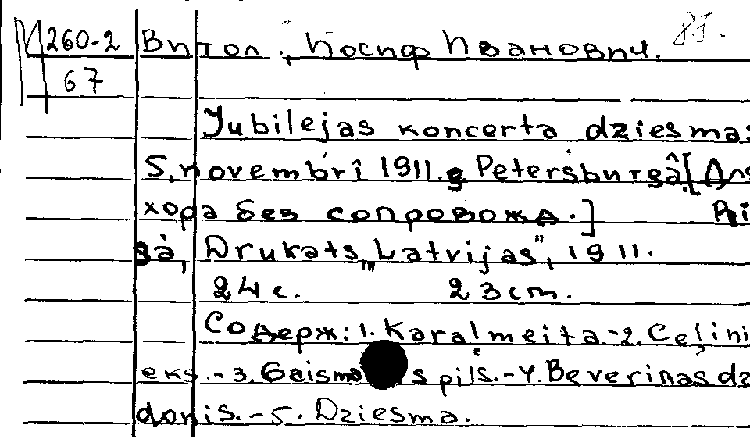 М 260-2 Витол, Иосиф Иванович. 85.
67
Jubilejas koncerta dziesmas
5. novembrî 1911.g Petersburgâ. [Для
хора без сопровожд.] Rî
gâ, Drukats „Latvijas", 1911.
24 с. 23 cm.
Содерж: 1. Karalmeita.-2. Ceļini
eks.-3. Gaismas pils.-4. Beverinas dz
donis.-5. Dziesma.